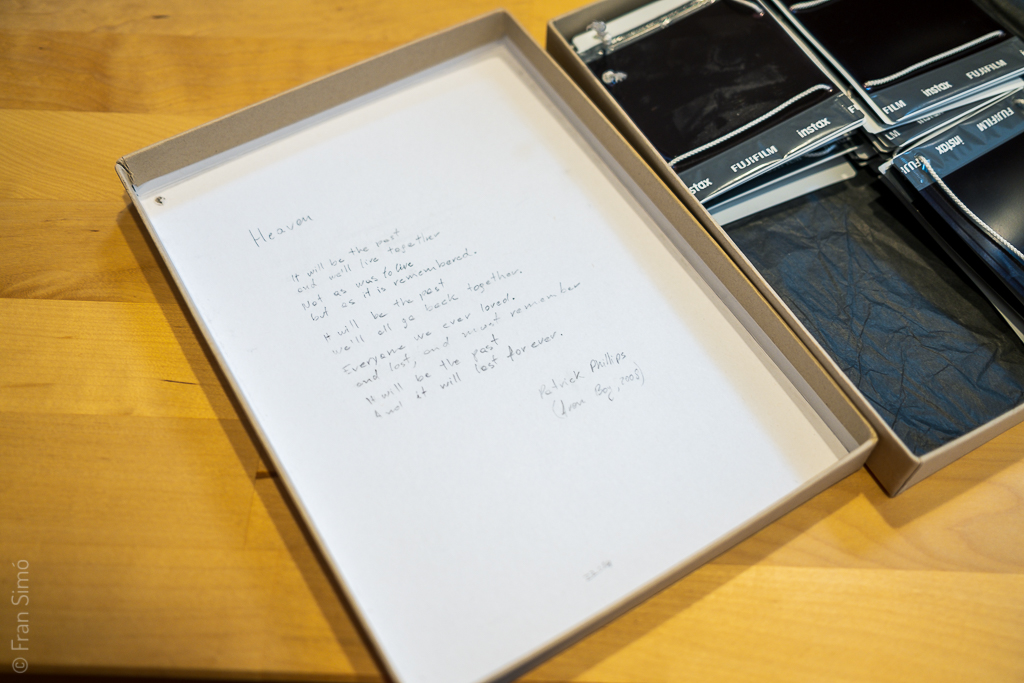 Heaven
It will be the past
and we'll live together
Not as was to live
but as it is remembered.
It will be the past
we'll all go back together.
Everyone we ever loved.
and lost, and must remember
It will be the past
And it will last for ever.
Patrick Phillips
(Boy, 2008)
FUJIFILM instax
stax FUJIFILM instax
FILM instax FUJIFILM
instax FUJIFILM
© Fran Simó